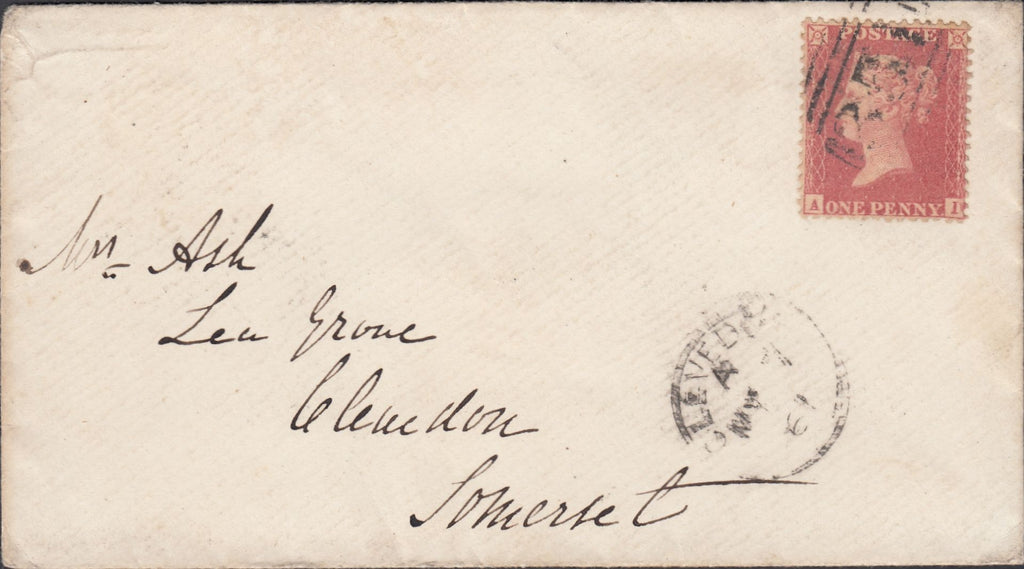 POSTAGE
A ONE PENNY I
Mrs Ash
Lea Grove
Clevedon
Somerset
CLEVEDON
A
61